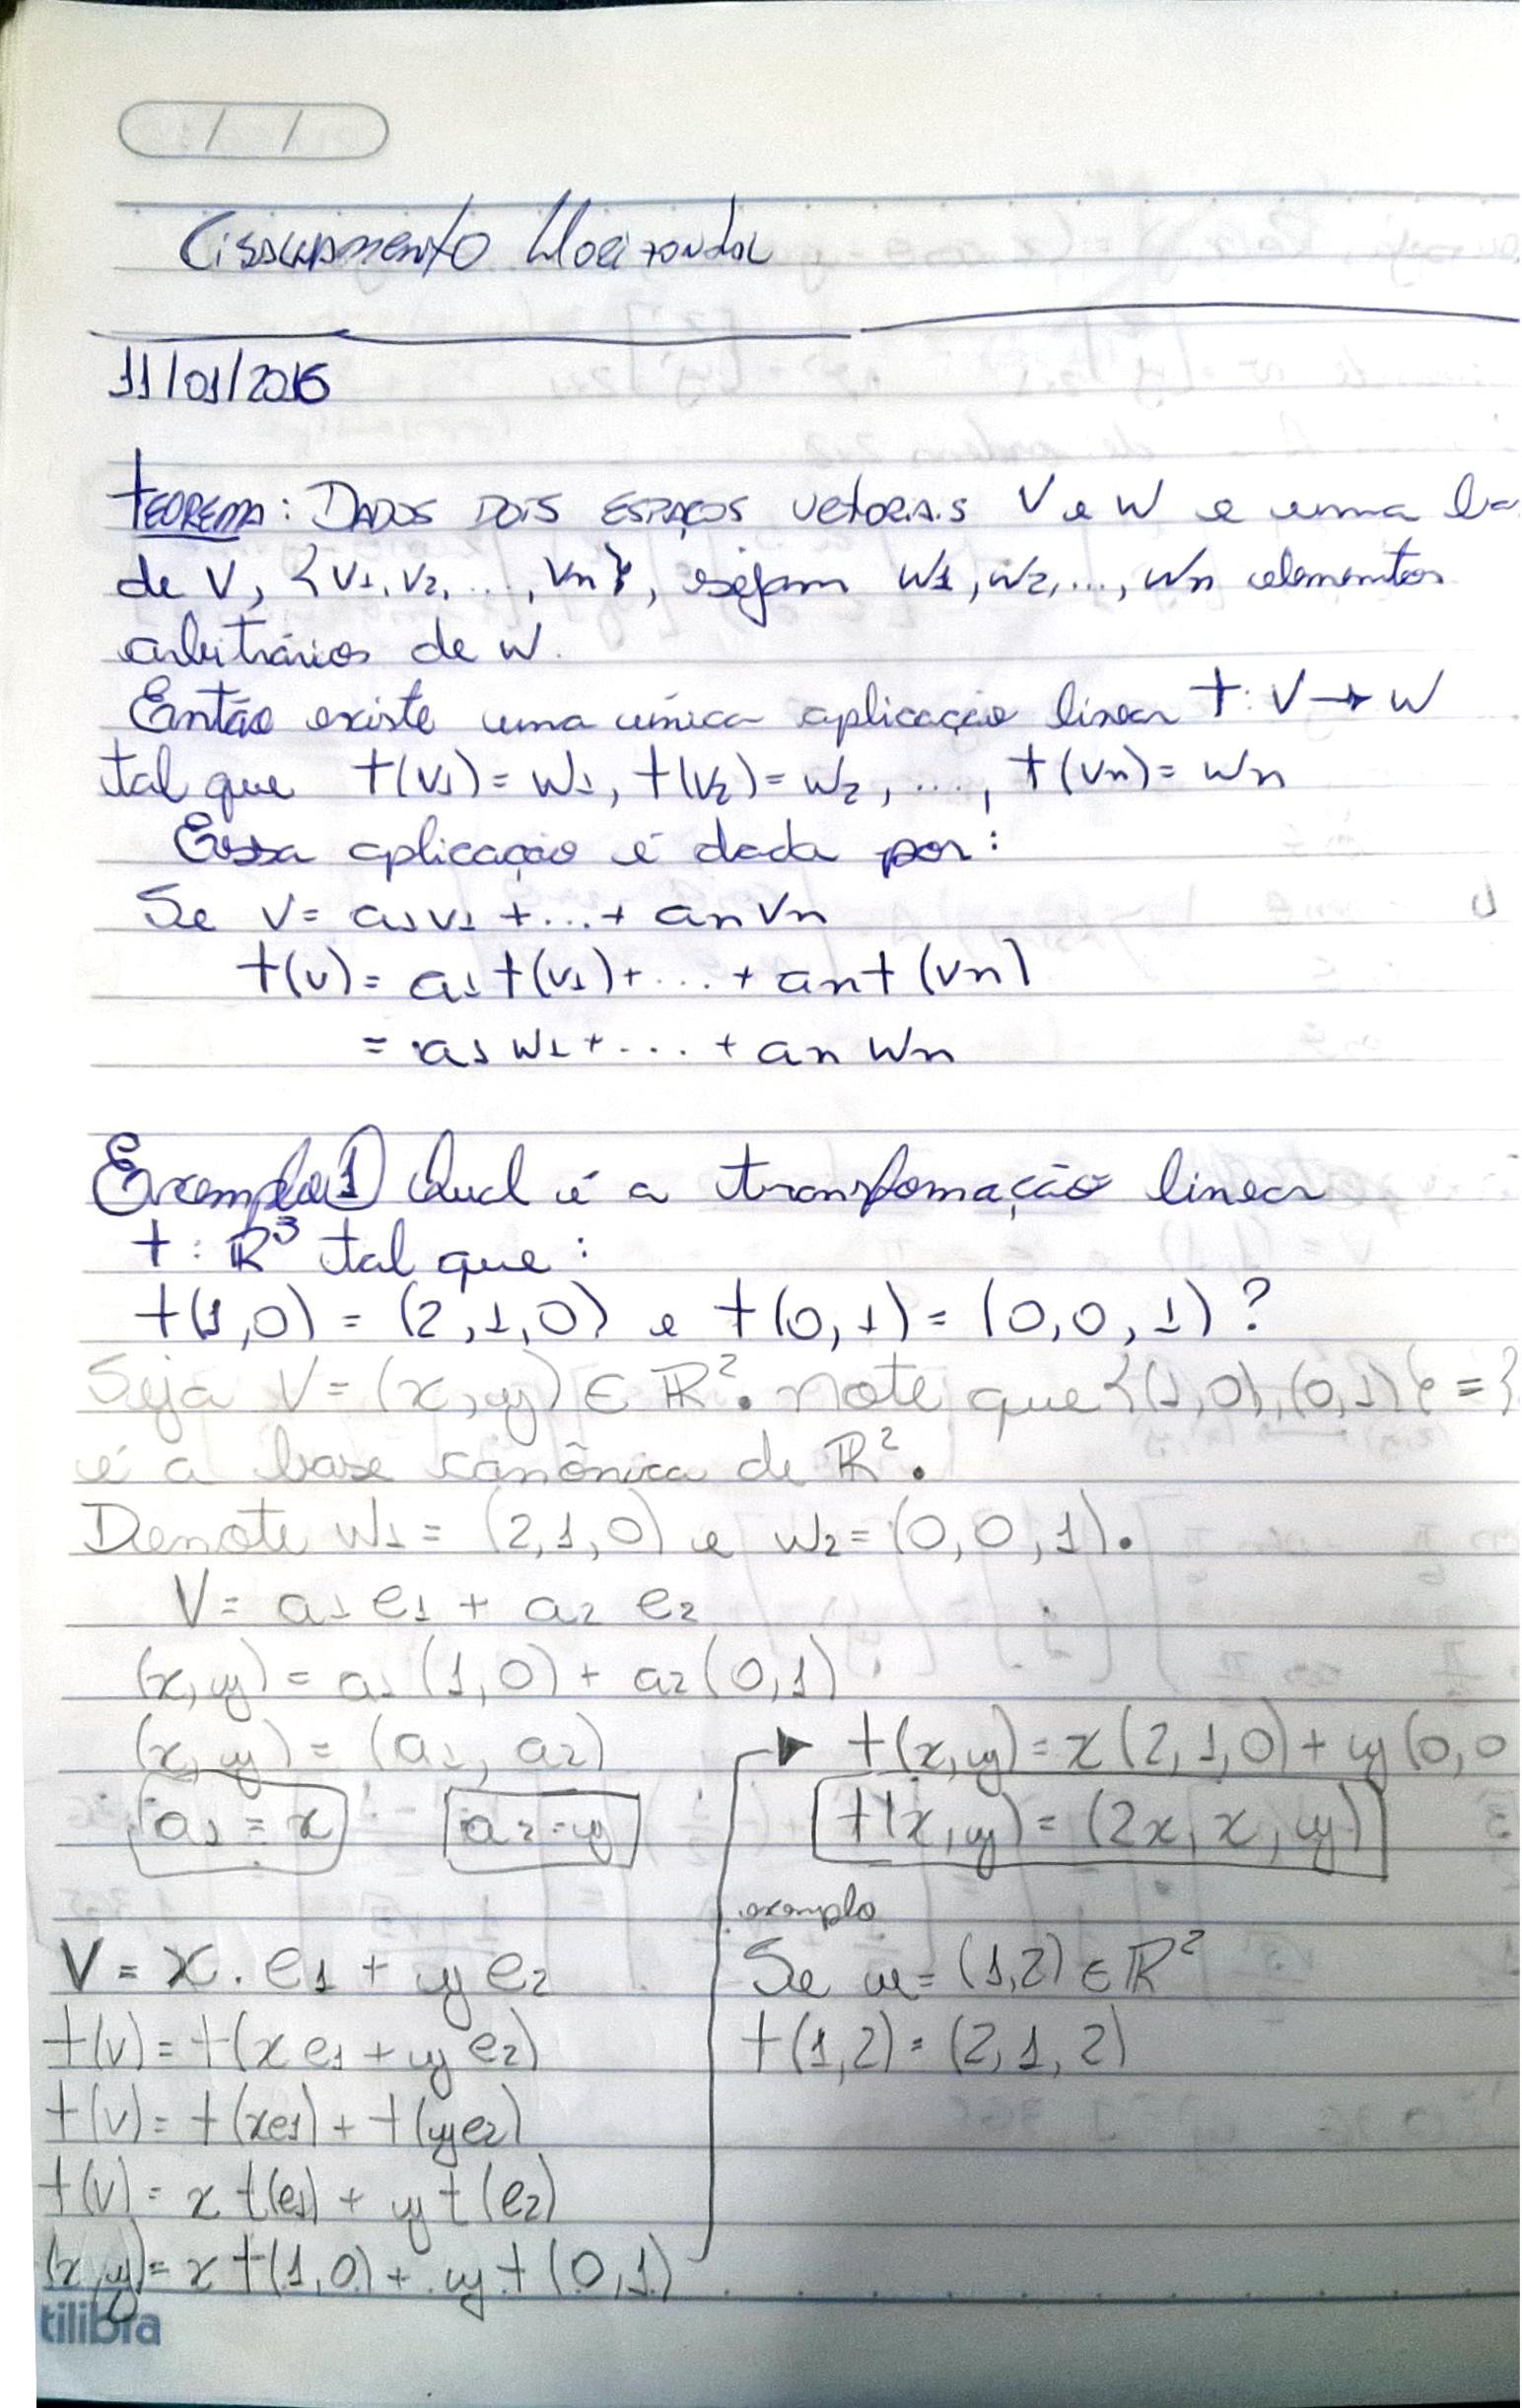 / /
Cisalhamento Horizontal
11/01/2016
TEOREMA: DADOS DOIS ESPAÇOS vetoriais V e W e uma ba
de V, {v1, v2, ..., vn}, sejam w1, w2, ..., wn elementos
arbitrários de W.
Então existe uma única aplicação linear T: V → W
tal que T(v1) = w1, T(v2) = w2, ..., T(vn) = wn
Essa aplicação é dada por:
Se v = a1v1 + ... + anvn
T(v) = a1T(v1) + ... + anT(vn)
= a1w1 + ... + anwn
Exemplo 1) Qual é a transfomação linear
T: ℝ³ tal que:
T(1,0) = (2,1,0) e T(0,1) = (0,0,1)?
Seja V = (x,y) ∈ ℝ². note que {(1,0),(0,1)} = {
é a base canônica de ℝ².
Denote w1 = (2,1,0) e w2 = (0,0,1).
V = a1 e1 + a2 e2
(x,y) = a1(1,0) + a2(0,1)
(x,y) = (a1, a2)
a1 = x a2 = y
V = x . e1 + y e2
T(v) = T(x e1 + y e2)
T(v) = T(xe1) + T(ye2)
T(v) = x T(e1) + y T(e2)
(x,y) = x T(1,0) + y T(0,1)
T(x,y) = x(2,1,0) + y(0,0
T(x,y) = (2x, x, y)
exemplo
Se u = (1,2) ∈ ℝ²
T(1,2) = (2,1,2)
tilibra